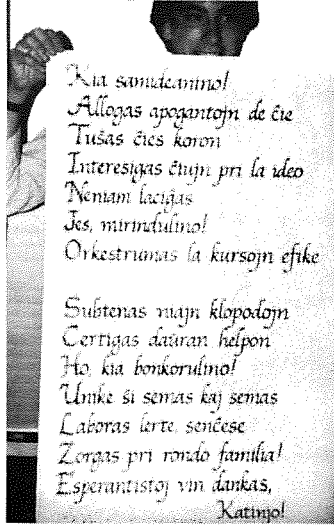 Kia samideanino!
Allogas apogantojn de ĉie
Tuŝas ĉies koron
Interesigas ĉiujn pri la ideo
Neniam laciĝas
Jes, mirindulino!
Orkestrumas la kursojn efike
Subtenas niajn klopodojn
Certigas daŭran helpon
Ho, kia bonkorulino!
Unike ŝi semas kaj semas
Laboras lerte, senĉese
Zorgas pri rondo familia!
Esperantistoj vin dankas,
Katinjo!